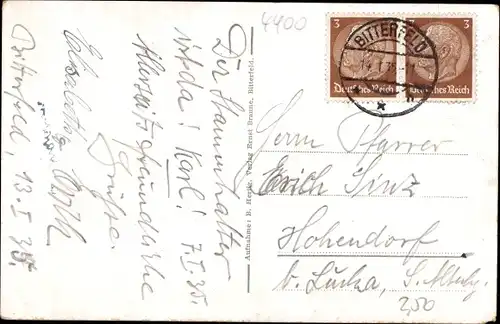 4400
3
3
BITTERFELD
Deutsches Reich
Deutsches Reich
Der Stammhalter
ist da! Karl! 7.I.35.
Allerseits freundliche
Grüsse.
Elisabeth
Bitterfeld, 13.I.35.
Verlag Ernst Braune, Bitterfeld.
Aufnahme:
Herrn Pfarrer
Erich Sinz
Hohendorf
b. Lucka, S. Altbg.
250